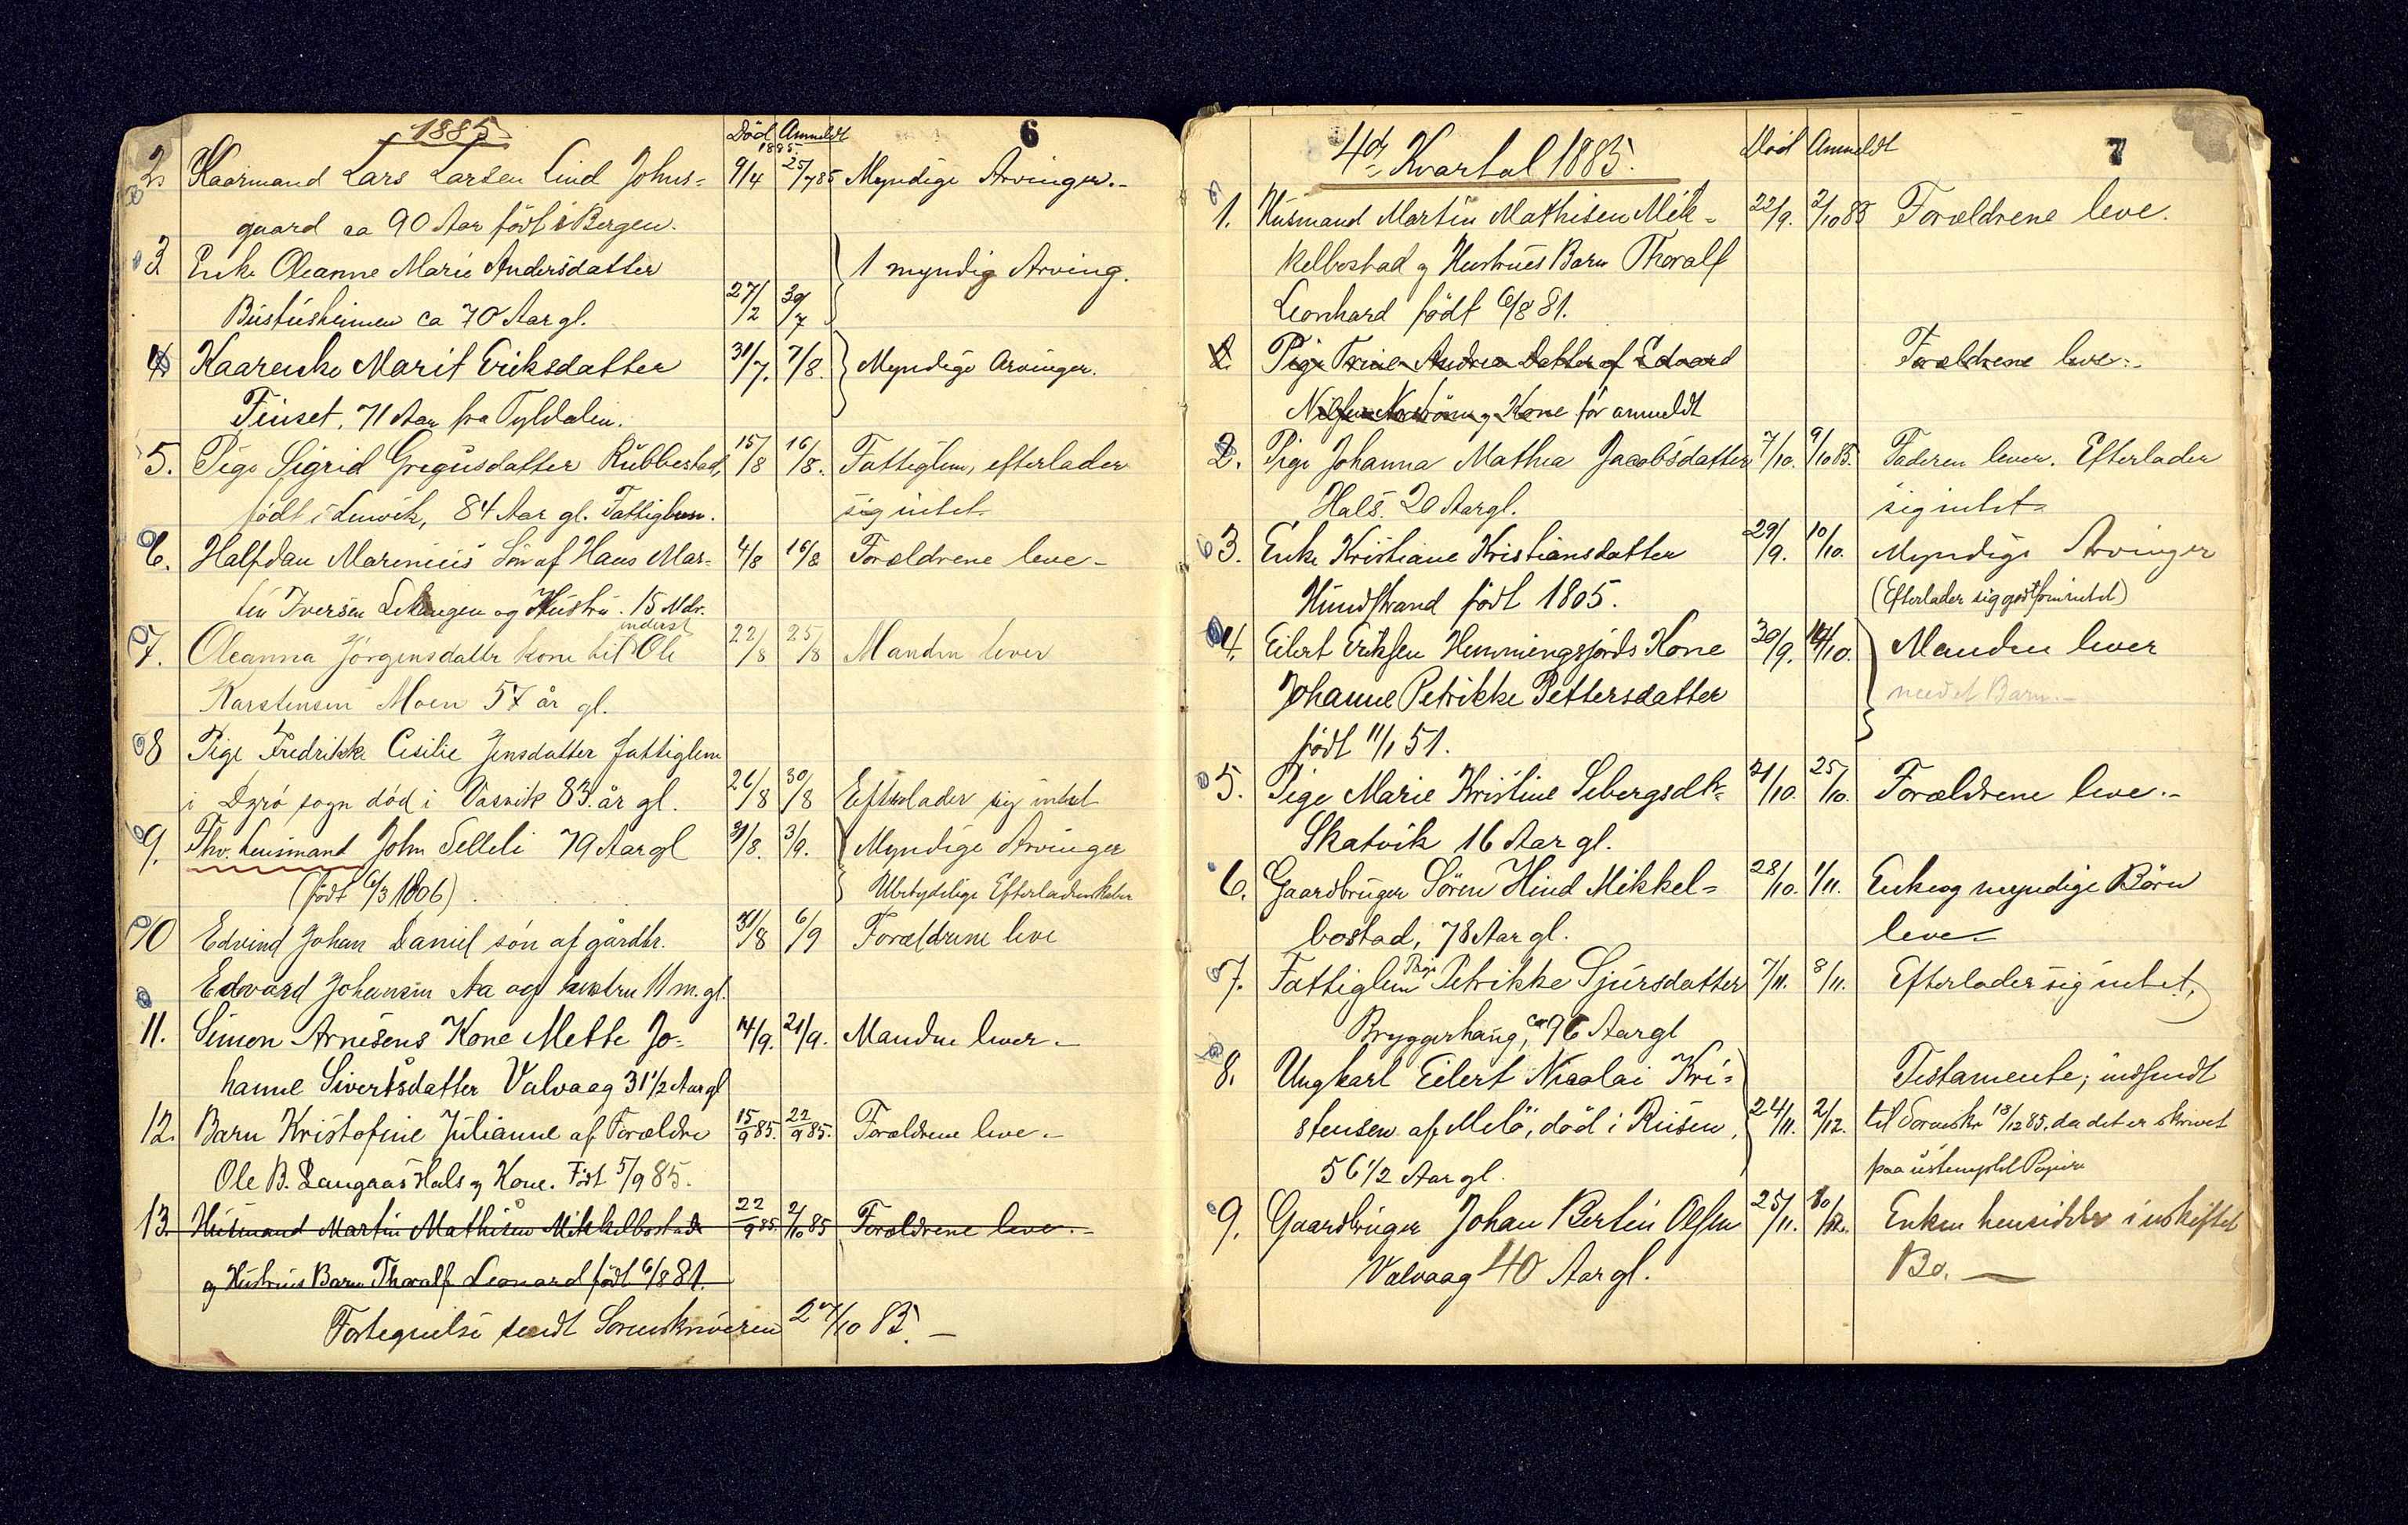 1885 Död Anmeldt 6
1885.
2. Kaarmand Lars Larsen Lind Johns= 9/4 25/7 85 Myndige Arvinger.-
gaard ca 90 Aar født i Bergen.
3. Enke Oleanne Marie Andersdatter 1 myndig Arving.
ca 70 Aar gl. 27/2 30/7
4. Kaarenke Marit Eriksdatter 31/7. 7/8. Myndige Arvinger.
Finset, 71 Aar fra Tyldalen.
5. Pige Sigrid Gregusdatter Rubbestad, 15/8 16/8. Fattiglem, efterlader
födt i Lenvik, 84 Aar gl. Fattiglem. sig intet
6. Halfdan Marenius Sön af Hans Mar= 4/8 16/8 Forældrene leve-
tin Iversen og Hustru. 15 Mdr.
inderst
7. Oleanna Jörgensdattr kone til Ole 22/8 25/8 Manden lever
Karstensen Moen 57 år gl.
8 Pige Fredrikke Cesilie Jensdatter fattiglem
i Dyrö sogn död i Vasvik 83 år gl. 26/8 30/8 Efterlader sig intet
9. Fhv. Lensmand John Selleli 79 Aar gl 31/8. 3/9. Myndige Arvinger
(født 6/3 1806) Ubetydelige Efterladenskaber
10 Edvind Johan Daniel sön af gårdbr. 31/8 6/9 Forældrene leve
Edvard Johansen Aa og hustru 11 m. gl.
11. Simon Arnesens Kone Mette Jo= 14/9. 21/9. Manden lever.-
hanne Sivertsdatter Valvaag 31 1/2 Aar gl
12. Barn Kristofine Julianne af Forældre 15/9 85. 22/9 85. Forældrene leve.-
Ole B. Langaas Hals og Kone. Født 5/9 85.
13. Husmand Martin Mathisen Mikkelbostad 22/9 85. 2/10 85 Forældrene leve.-
og Hustrues Barn Thoralf Leonard født 6/8 81.
Fortegnelse sendt Sorenskriveren 2/10 85.-
4de Kvartal 1885. Död Anmeldt 7
1. Husmand Martin Mathisen Mik= 22/9. 2/10 85 Forældrene leve.
kelbostad og Hustrues Barn Thoralf
Leonhard födt 6/8 81.
2. Pige Trine Andrea Datter af Edvard Forældrene leve.-
og Kone för anmeldt
2. Pige Johanna Mathea Jacobsdatter 7/10. 9/10 85. Faderen lever. Efterlader
Hals. 20 Aar gl. sig intet
3. Enke Kristiane Kristiansdatter 29/9. 10/10. Myndige Arvinger
Hundstrand födt 1805. (Efterlader sig godt som intet)
4. Eilert Eriksen Hemmingsjords Kone 30/9. 14/10. Manden lever
Johanne Petrikke Pettersdatter med et Barn.-
födt 11/1 51.
5. Pige Marie Kristine Sebergsdt= 21/10. 25/10. Forældrene leve.-
Skatvik 16 Aar gl.
6. Gaardbruger Sören Hind Mikkel= 28/10. 1/11. Enke og myndige Börn
bostad, 78 Aar gl. leve-
Pige
7. Fattiglem Petrikke Sjursdatter 7/11. 8/11. Efterlader sig intet,
Bryggerhaug, ca 96 Aar gl
8. Ungkarl Eilert Nicolai Kri= Testamente; indsendt
stensen af Melö, död i Reisen, 24/11. 2/12. til Sorenskr 13/12 85, da det er skrevet
56 1/2 Aar gl. paa ustemplet Papir
9. Gaardbruger Johan Bertin Olsen 25/11. 10/12. Enken hensidder i uskiftet
Valvaag 40 Aar gl. Bo.-